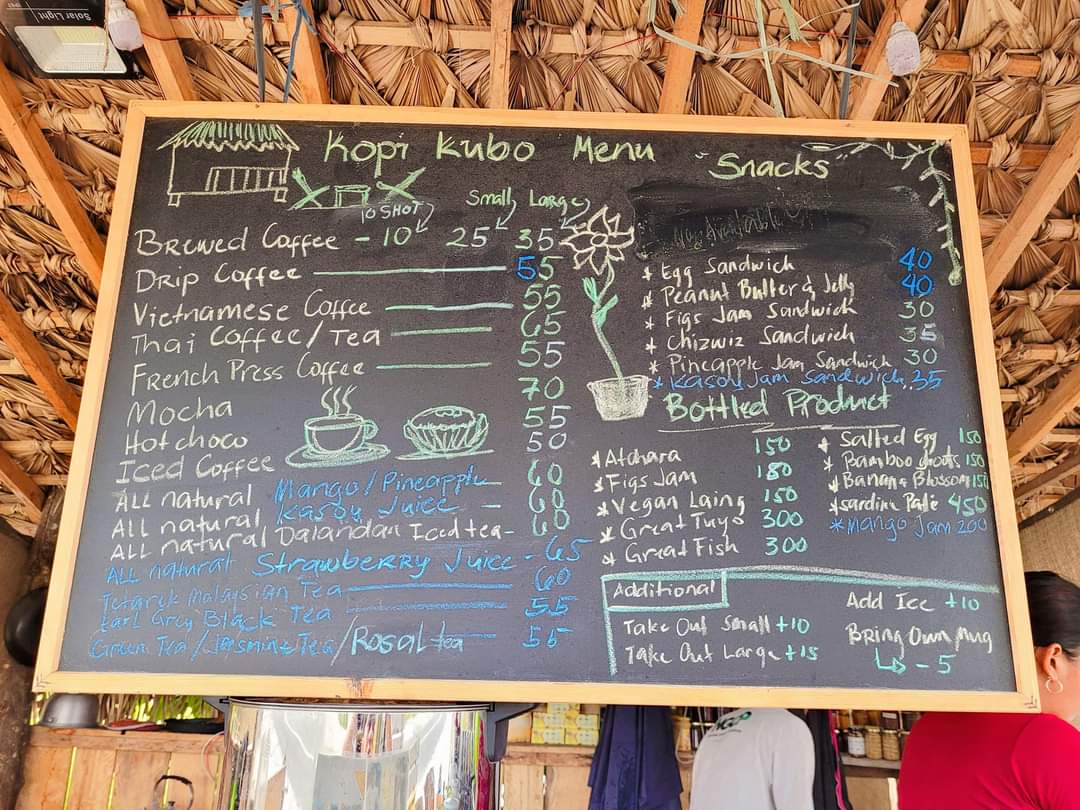 Solar Light
Kopi Kubo Menu
10 SHOT Small Large
Brewed Coffee - 10 25 35
Drip Coffee 55
Vietnamese Coffee 55
Thai Coffee/Tea 65
French Press Coffee 55
Mocha 70
Hot choco 55
Iced Coffee 50
ALL natural Mango/Pineapple 60
ALL natural Kasoy Juice - 60
ALL natural Dalandan Iced tea - 60
ALL natural Strawberry Juice - 65
Tetarik Malaysian Tea 60
Earl Grey Black Tea 55
Green Tea/Jasmine Tea/Rosal tea 55
"Snacks"
Available
* Egg Sandwich 40
* Peanut Butter & Jelly 40
* Figs Jam Sandwich 30
* Chizwiz Sandwich 35
* Pineapple Jam Sandwich 30
* Kasoy Jam Sandwich. 35
Bottled Product
* Atchara 150
* Figs Jam 180
* Vegan Laing 150
* Great Tuyo 300
* Great Fish 300
* Salted Egg 150
* Bamboo Shoots 150
* Banana Blossom 150
* Sardine Pate 450
* Mango Jam 200
Additional
Take Out Small +10
Take Out Large +15
Add Ice +10
Bring Own Mug
- 5